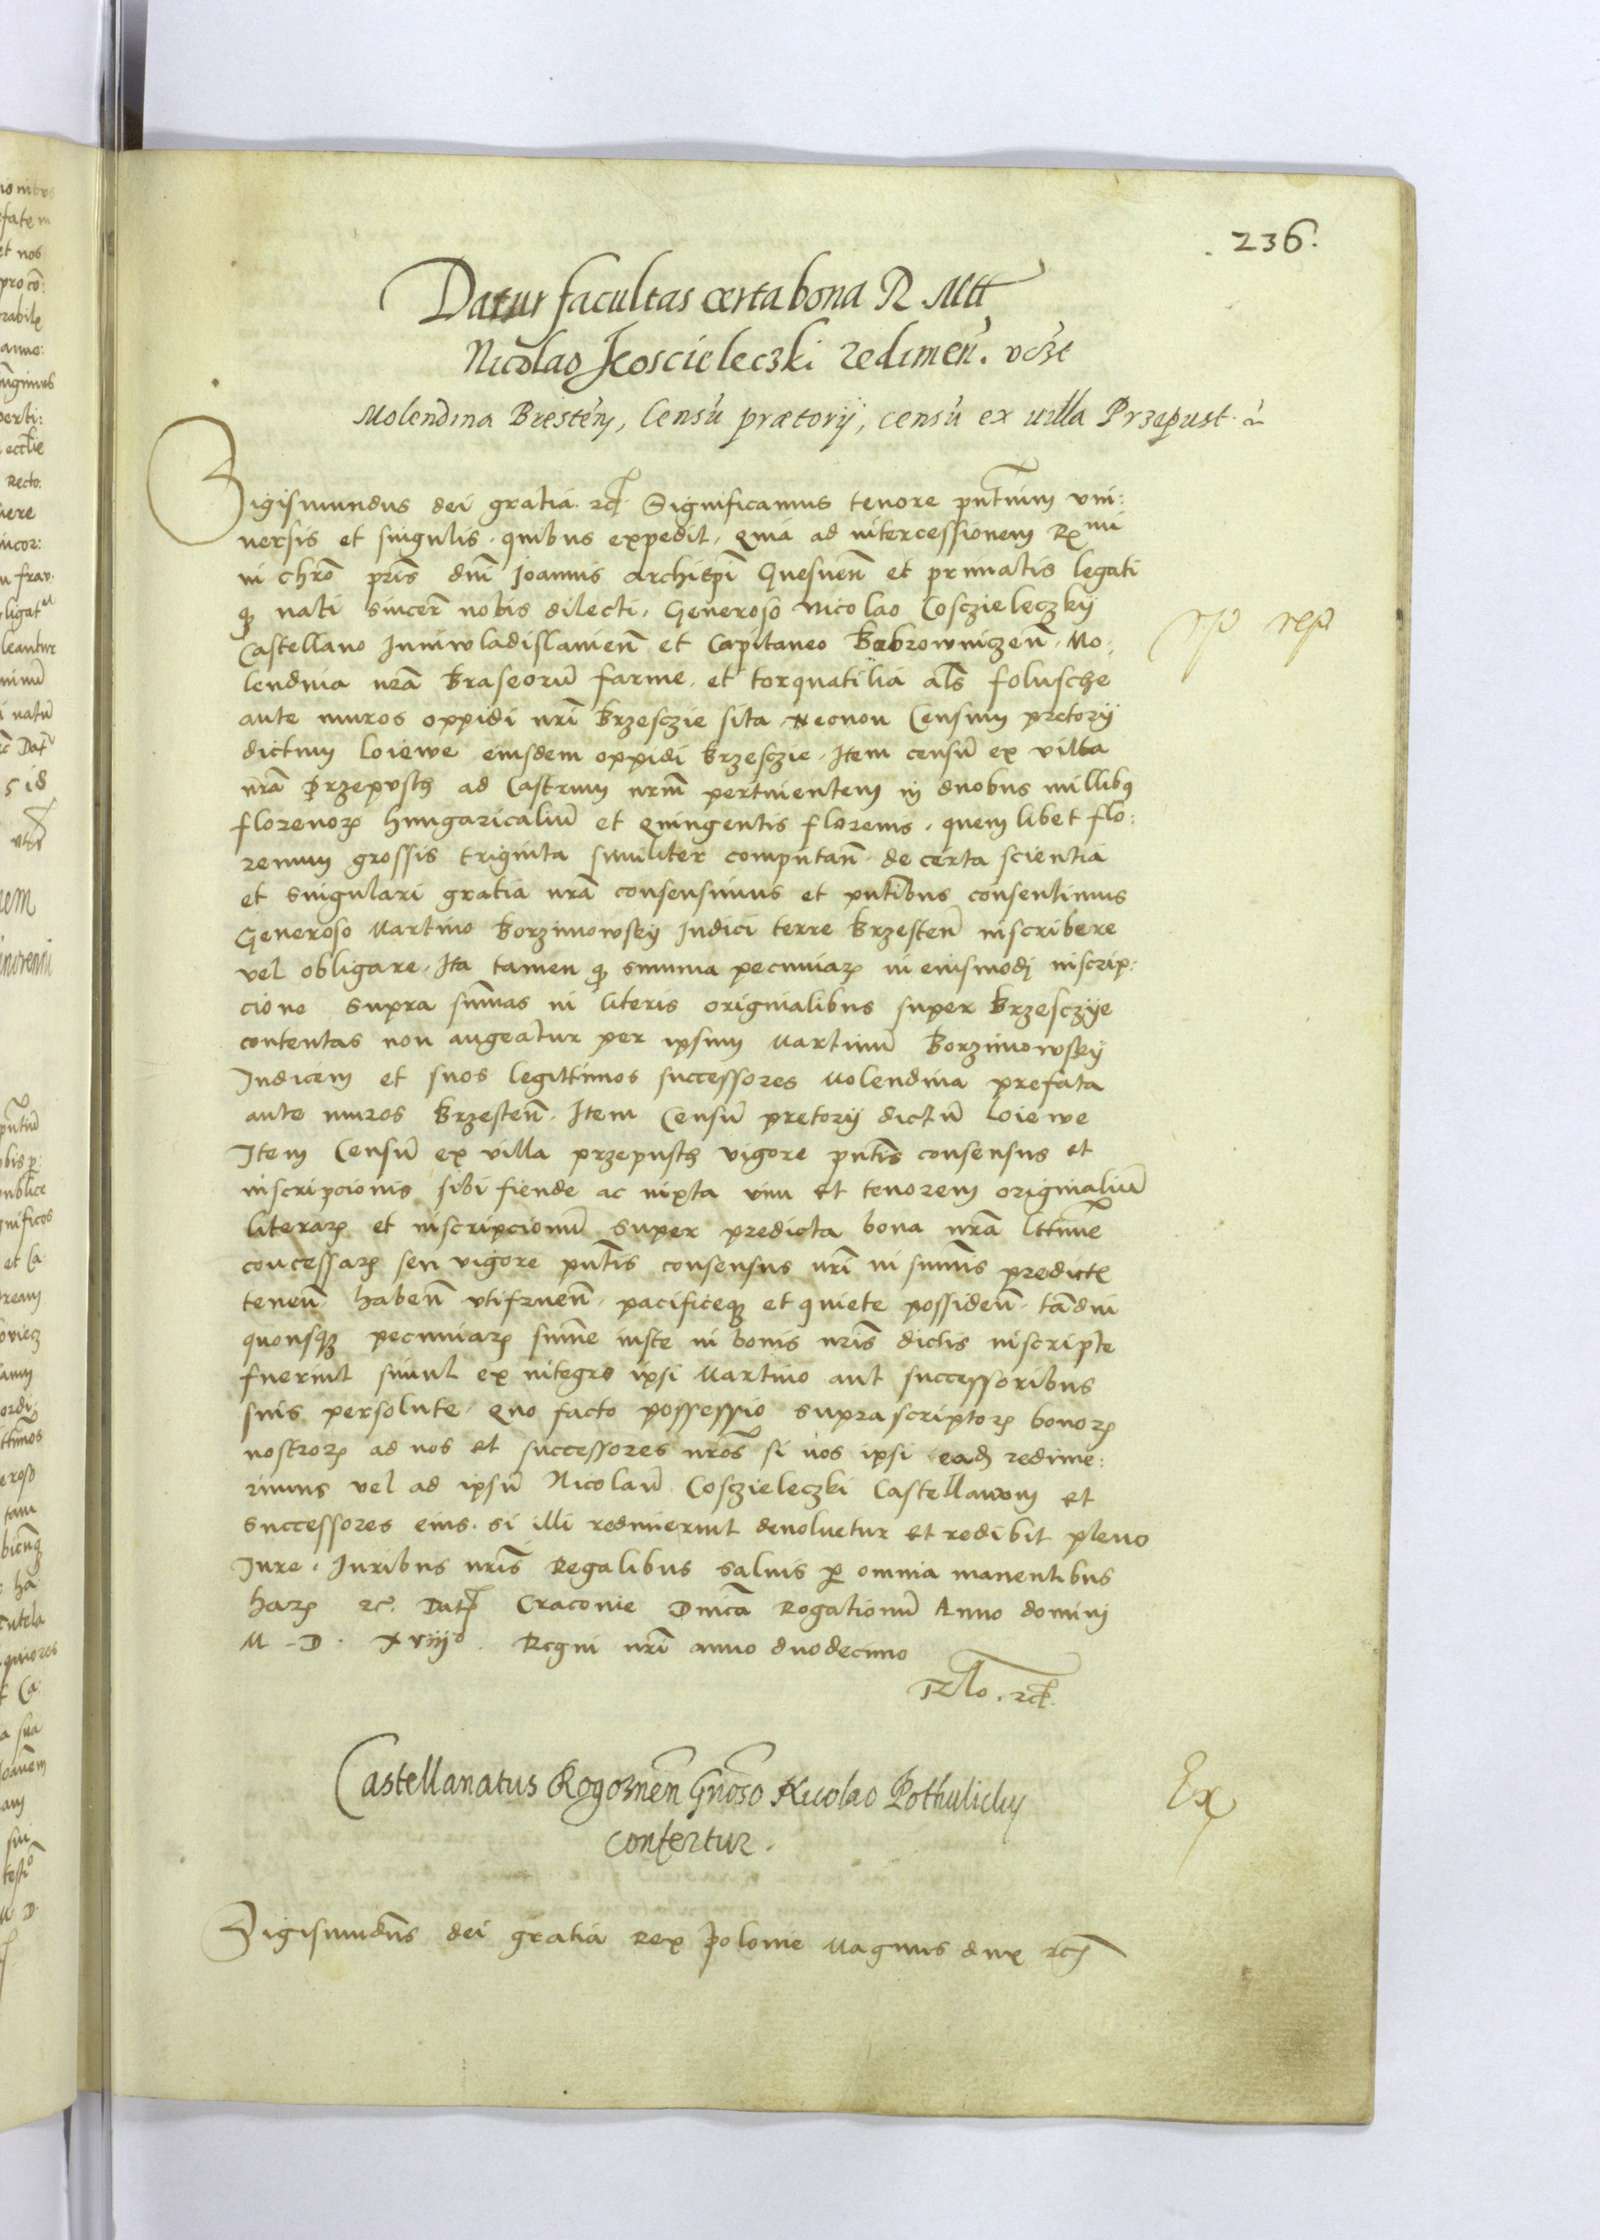 236.
Datur facultas certa bona R Mtt
Nicolao Koscieleczki redimen̄.
Molendina Bresten̄, Censū prætorij, censū ex uilla Przepust
Sigismundus dei gratia rc̄ Significamus tenore pn̄tium vni:
uersis et singulis quibus expedit, quia ad intercessionem Rx̄mi
in chrō pris̄ dnī Joannis archiep̄i Gnesnen̄ et primatis legati
q̨ nati sincer̄ nobis dilecti, Generoso Nicolao Cosczieleczkij
Castellano Juniwladislauien̄ et Capitaneo Bobrowniczen̄ Mo:
lendina nrā Braseorū farine et torquatilia als̄ folusche
ante muros oppidi nrī Brzesczie sita Necnon Censum pretorij
dictum loiewe eiusdem oppidi Brzesczie, Item censū ex villa
nrā Przepusth ad Castrum nrm̄ pertinentem in duobus millibq
florenoꝝ hungaricaliū et Quingentis florenis, quem libet flo:
renum grossis triginta similiter computan̄ de certa scientia
et singulari gratia nrā consensimus et pn̄tibus consentimus
Generoso Martino Borzimowsky Judici terre Brzesten̄ inscribere
vel obligare, Ita tamen q̨ summa pecuniaꝝ in eiusmodj inscrip:
cione supra sum̄as in literis originalibus super Brzesczije
contentas non augeatur per ipsum Martinū Borzimowskij
Judicem et suos legittimos successores Molendina prefata
ante muros Brzesten̄ Item Censū pretorij dictū loiewe
Item Censū ex villa przepusth vigore pn̄tis consensus et
inscripcionis sibi fiende ac iuxta vim et tenorem originaliū
literaꝝ et inscripcionū super predicta bona nrā lttime
concessaꝝ seu vigore pn̄tis consensus nrī in sum̄is predictꝭ
tenen̄ haben̄ vtifruen̄, pacificeq̨ et quiete possiden̄ tādiu
quousq̨ pecuniaꝝ sum̄e iuste in bonis nris̄ dictis inscripte
fuerint simul ex integro ipsi Martino aut successoribus
suis persolute, Quo facto possessio suprascriptoꝝ bonoꝝ
nostroꝝ ad nos et successores nros̄ si nos ipsi ead̄ redime:
rimus vel ad ipsū Nicolaū Cosczieleczki Castellanum et
successores eius si illi redimerint deuoluetur et redibit pleno
Jure, Juribus nris̄ Regalibus saluis ꝑ omnia manentibus
haꝝ rc̄ Datꝭ Craconie Dnīca Rogationū Anno dominj
M - D . xviijo Regni nrī anno duodecimo
Rlo. rc̄
Castellanatus Rogoznen̄ Gnōso Nicolao Pothulicky
confertur.
Ex
Sigismūdus dei gratia Rex Polonie Magnus dux rc̄